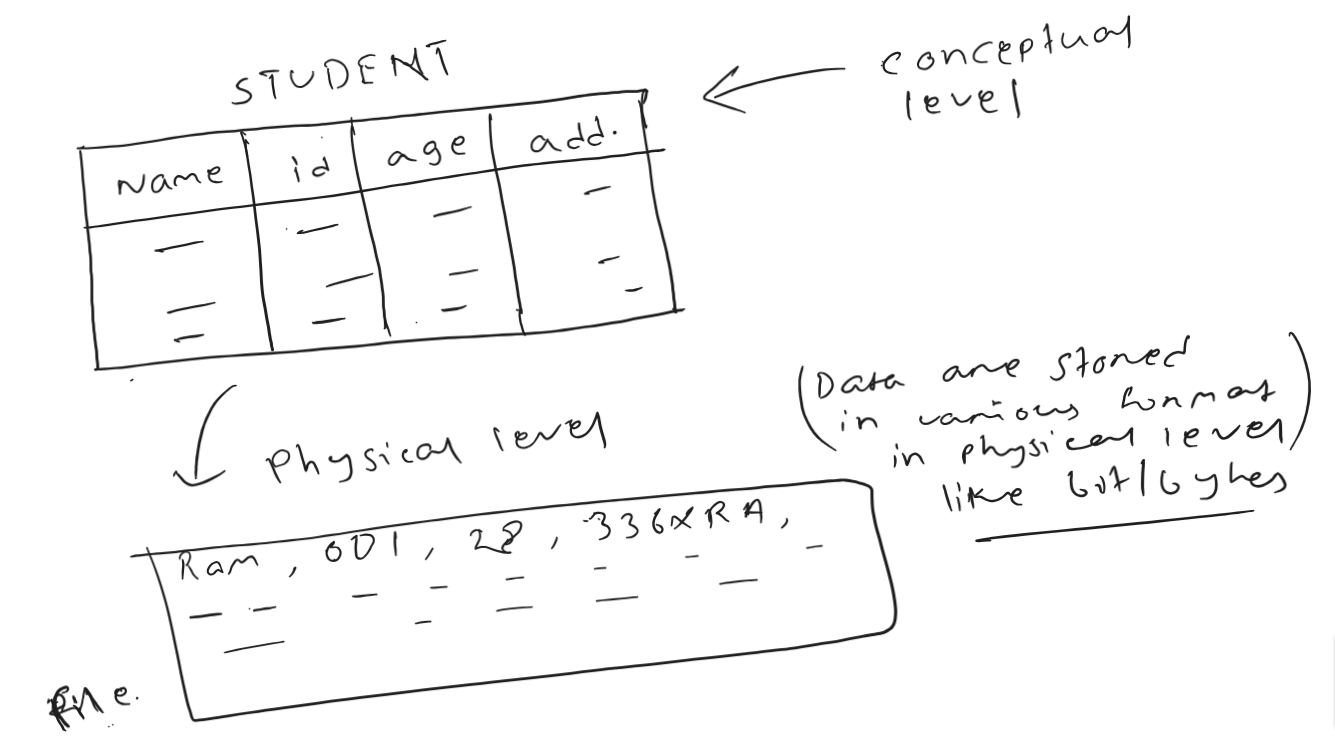 STUDENT
conceptual
level
Name id age add.
Physical level
(Data are stored
in various format
in physical level)
like bit/bytes
Ram, 001, 28, 336XRA,
file.